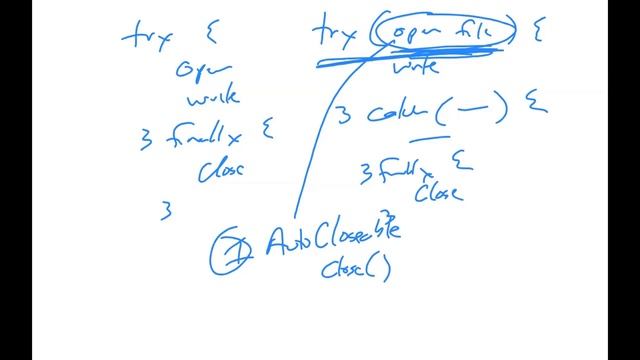 try {
open
work
} finally {
close
}
try (open file) {
write
} catch ( — ) {
} finally {
close
I AutoCloseable
close()